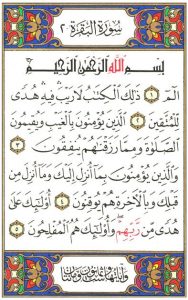 سُورَةُ الْبَقَرَةِ ٢
بِسْمِ اللَّهِ الرَّحْمَٰنِ الرَّحِيمِ
الٓمٓ ١ ذَٰلِكَ الْكِتَابُ لَا رَيْبَ فِيهِ هُدًى
لِّلْمُتَّقِينَ ٢ الَّذِينَ يُؤْمِنُونَ بِالْغَيْبِ وَيُقِيمُونَ
الصَّلَوٰةَ وَمِمَّا رَزَقْنَٰهُمْ يُنفِقُونَ ٣
وَالَّذِينَ يُؤْمِنُونَ بِمَا أُنزِلَ إِلَيْكَ وَمَا أُنزِلَ مِن
قَبْلِكَ وَبِالْآخِرَةِ هُمْ يُوقِنُونَ ٤ أُولَٰئِكَ عَلَىٰ
هُدًى مِّن رَّبِّهِمْ وَأُولَٰئِكَ هُمُ الْمُفْلِحُونَ ٥